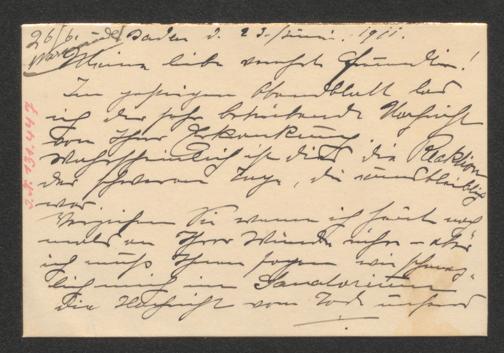 26/6.
Baden d. 23. Juni. 1911.
Meine liebe verehrte Freundin!
Im gestrigen Abendblatt las
ich die sehr betrübende Nachricht
von Ihrer Erkrankung
Wahrscheinlich ist dies die Reaktion
der schweren Tage, die unausbleiblich
war.
Verzeihen Sie wenn ich heute noch
mals an Ihrer Wunde rühre – aber
ich muß Ihnen sagen wie schmerz-
lich mich im Sanatorium
die Nachricht vom Tode unseres
I.N. 131.447